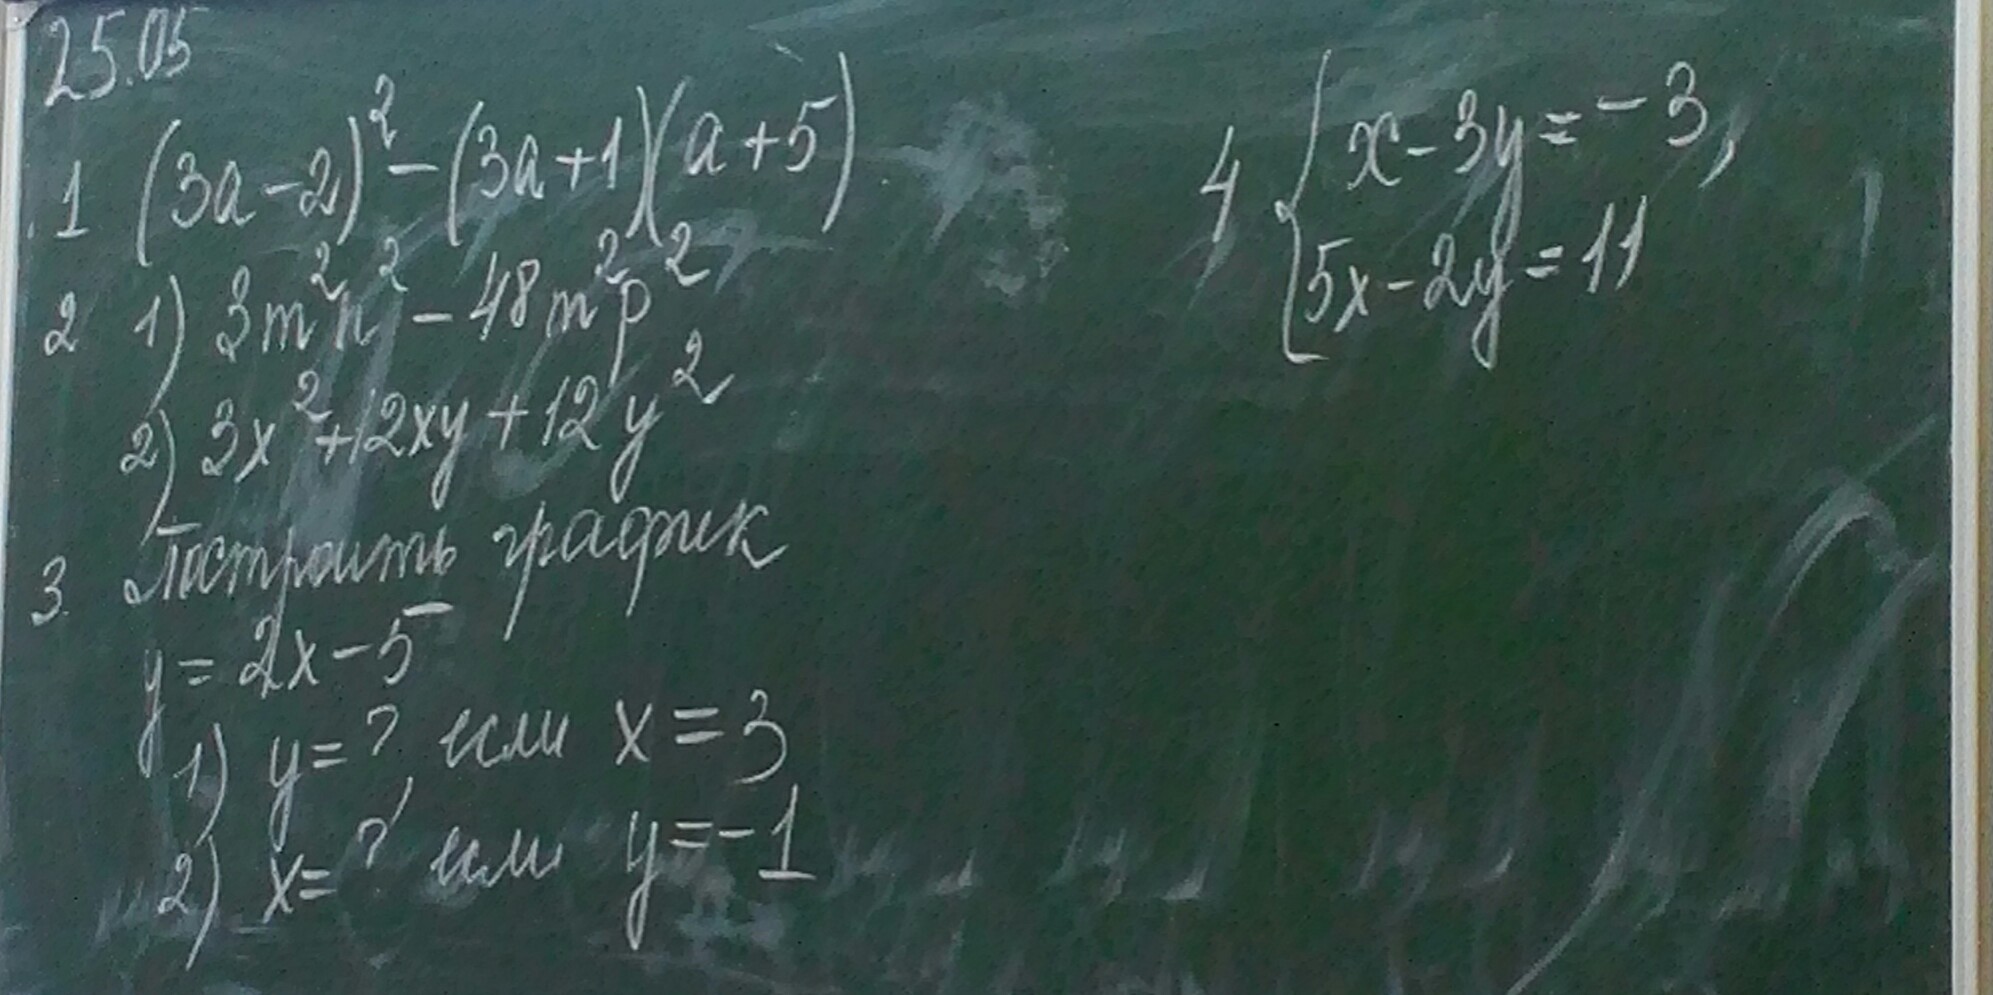 25.05
1 (3a-2)² - (3a+1)(a+5)
2 1) 3m²n² - 48m²p²
2) 3x² + 12xy + 12y²
3. Построить график
y = 2x - 5
1) y = ? если x = 3
2) x = ? если y = -1
4 { x - 3y = -3,
5x - 2y = 11